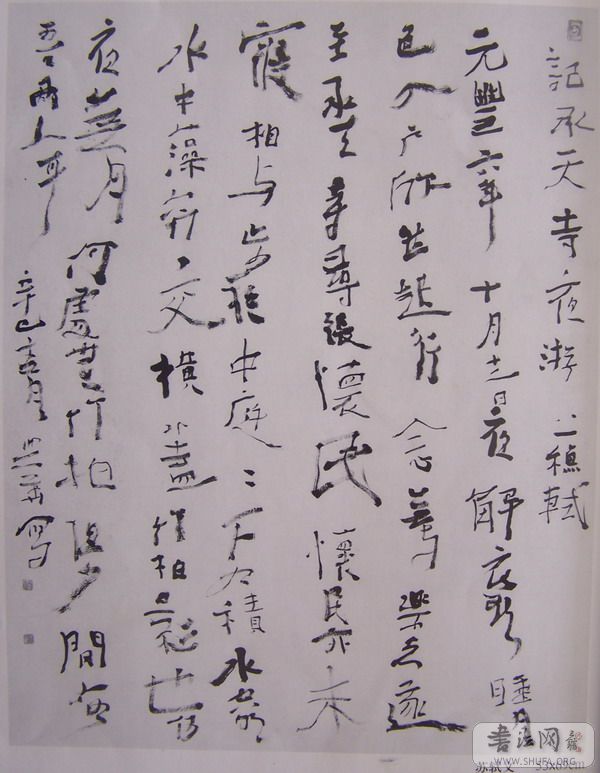 記承天寺夜游 軾
元豐六年十月十二日夜解衣欲睡月
色入户欣然起行念無与樂者遂
至承天寺尋張懷民懷民亦未
寢相与步於中庭〻下如積水空明
水中藻荇交橫蓋竹柏影也何
夜無月何處無竹柏但少間如
吾兩人耳 辛巳 月 寫
书法网
WWW.SHUFA.ORG